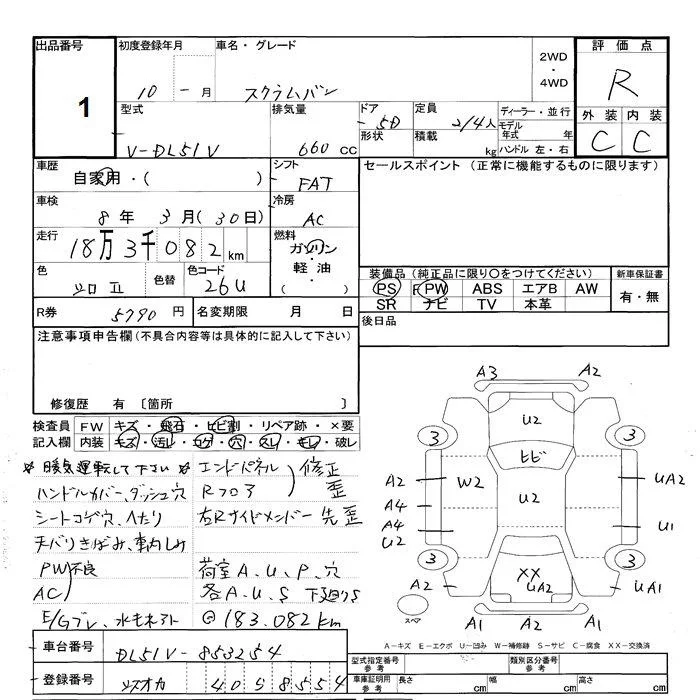 出品番号
1
初度登録年月
10 - 月
車名・グレード
スクラムバン
2WD
・
4WD
評価点
R
外装 内装
C C
型式
V-DL51V
排気量
660 cc
ドア
5D
形状
定員
2/4人
積載 kg
ディーラー・並行
モデル年式 年
ハンドル 左・右
車歴
自家用・( )
シフト
FAT
セールスポイント (正常に機能するものに限ります)
車検
8年 3月(30日)
冷房
AC
走行
18万3千082km
燃料
ガソリン
軽油
( )
色
色替
色コード
26U
装備品(純正品に限り○をつけてください)
PS PW ABS エアB AW
SR ナビ TV 本革
新車保証書
有・無
R券 5790円
名変期限 月 日
後日品
注意事項申告欄(不具合内容等は具体的に記入して下さい)
修復歴 有 〔箇所 〕
検査員記入欄
FW キズ・飛石・ヒビ割・リペア跡・×要
内装 キズ・汚レ・コゲ・穴・スレ・モレ・破レ
※暖気運転して下さい※
ハンドルカバー、ダッシュ穴
シートコゲ穴、へたり
天バリきばみ、車内しみ
PW不良
AC)
E/Gブレ、水モネアト
エンドパネル
Rフロア
修正
歪
左Rサイドメンバー先歪
荷室A、U、P、穴
各A、U、S 下廻りS
@183.082km
A3 A2
U2
3 3
ヒビ
A2 W2 U2 UA2
A4
A4 U1
U2
3 3
XX
UA2
A2 UA1
A2 A1 A1
スペア
A-キズ E-エクボ U-凹み W-補修跡 S-サビ C-腐食 XX-交換済
車台番号
DL51V-853254
登録番号
40 S 8554
型式指定番号
参考
類別区分番号
参考
車庫証明用
参考
長さ cm 幅 cm 高さ cm